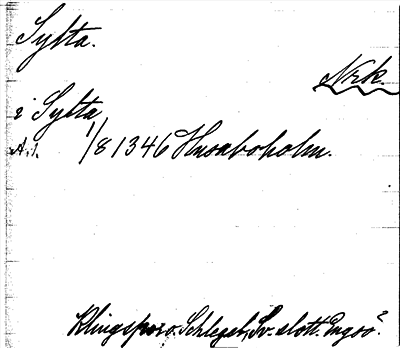 Sylta.
Nrk.
i Sylta
A.1. 1/8 1346 Husaboholm.
Klingspor o. Schlegel, Sv. slott. Engsö²